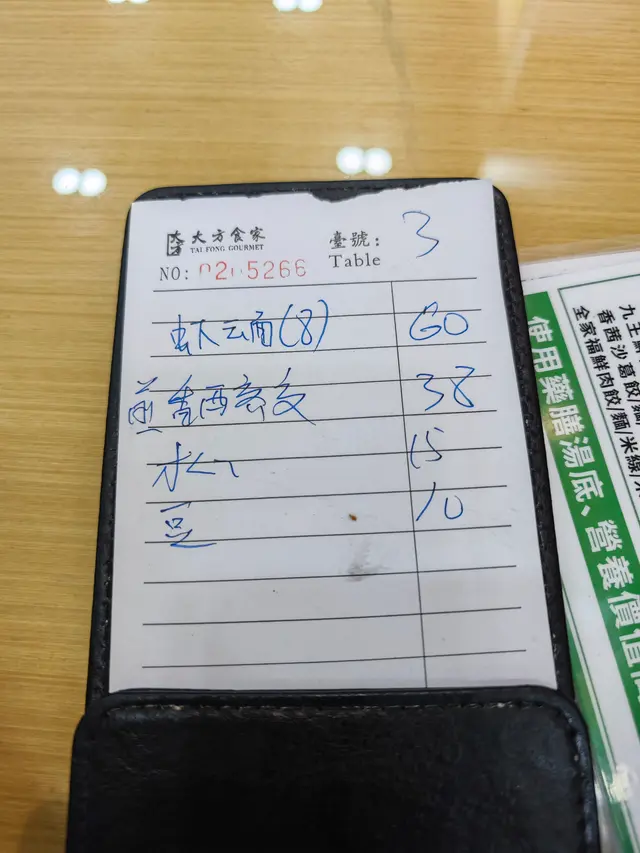 大方食家
TAI FONG GOURMET
臺號: 3
Table
NO: 0205266
虾云面(8) 60
煎 38
水 15
豆 10
使用藥膳湯底、營養價值
香茜沙葛餃/
全家福鮮肉餃/麵/米線/